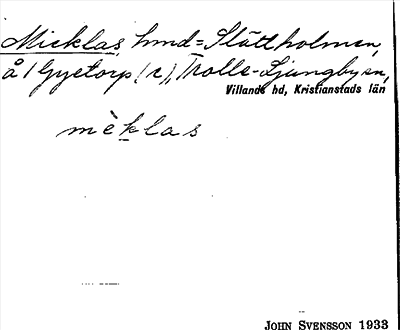 Micklas, hmd = Slättholmen,
å 1 Gyetorp (r), Trolle-Ljungby sn,
Villands hd, Kristianstads län
mèklas
JOHN SVENSSON 1933